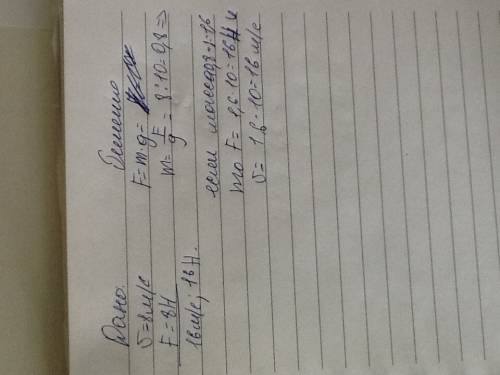 Дано:
υ=8м/с
F=8Н
16м/с; 16Н.
Решение
F=m·g=
m=F/g=8:10=0,8⇒
если масса
то F=1,6·10=16Н и
υ=1,6·10=16м/с